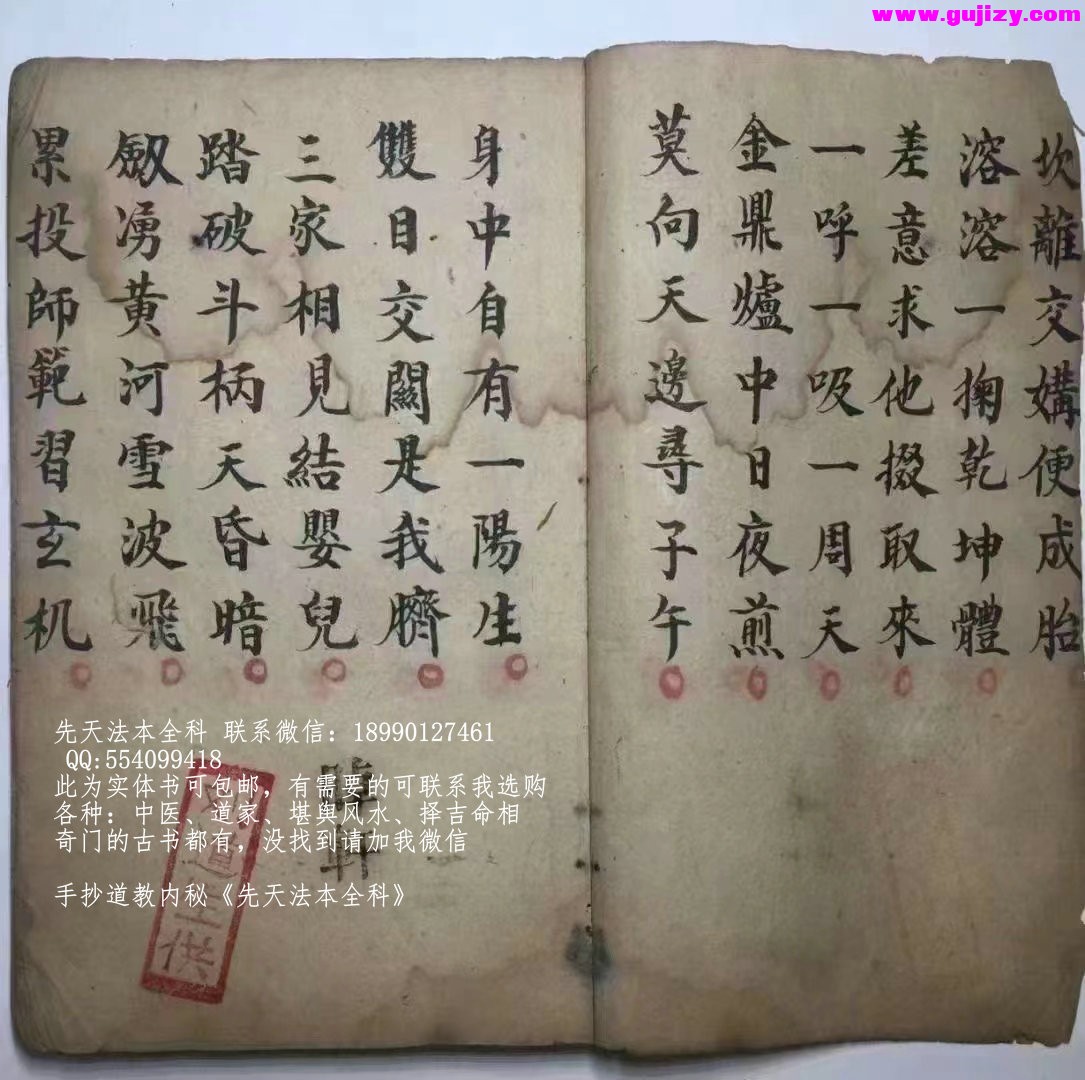 www.gujizy.com
坎離交媾便成胎
溶溶一掬乾坤體
差意求他掇取來
一呼一吸一周天
金鼎爐中日夜煎
莫向天邊尋子午
身中自有一陽生
雙目交關是我臍
三家相見結嬰兒
踏破斗柄天昏暗
劔湧黄河雪波飛
累投師範習玄机
先天法本全科 联系微信：18990127461
QQ:554099418
此为实体书可包邮，有需要的可联系我选购
各种：中医、道家、堪舆风水、择吉命相
奇门的古书都有，没找到请加我微信
手抄道教内秘《先天法本全科》
軒
道
供